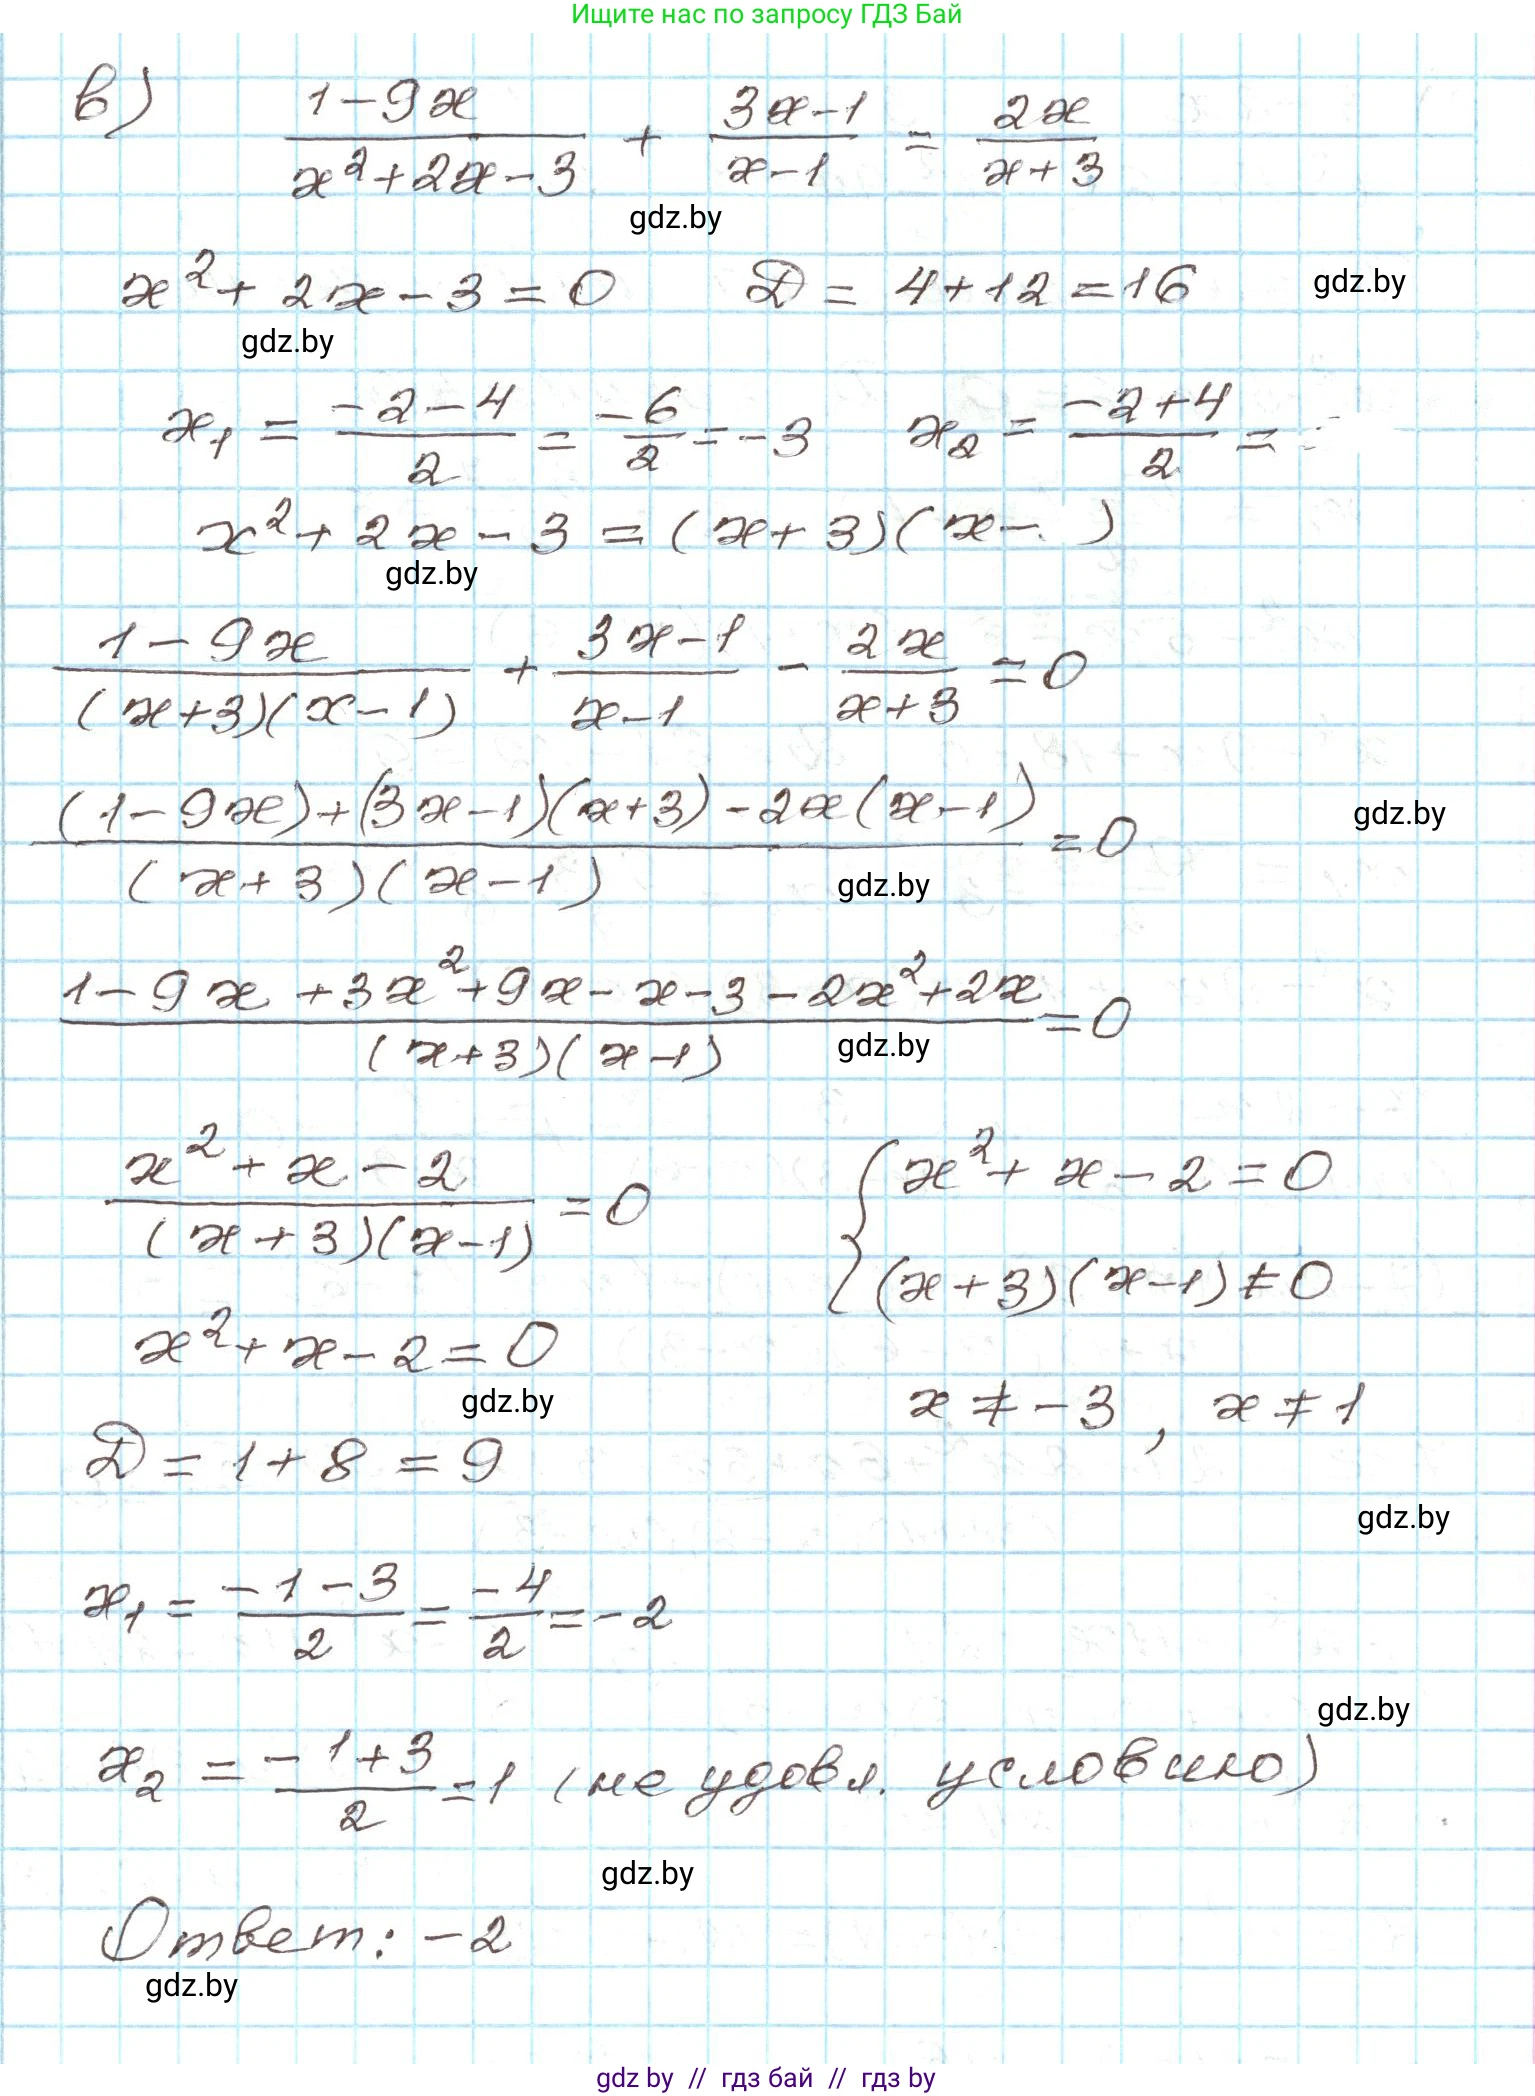 Ищите нас по запросу ГДЗ Бай
в) (1-9x)/(x²+2x-3) + (3x-1)/(x-1) = 2x/(x+3)
gdz.by
x²+2x-3=0 D=4+12=16 gdz.by
gdz.by
x₁ = (-2-4)/2 = -6/2 = -3 x₂ = (-2+4)/2 =
x²+2x-3=(x+3)(x- )
gdz.by
(1-9x)/((x+3)(x-1)) + (3x-1)/(x-1) - 2x/(x+3) = 0
((1-9x)+(3x-1)(x+3)-2x(x-1))/((x+3)(x-1)) = 0 gdz.by
gdz.by
(1-9x+3x²+9x-x-3-2x²+2x)/((x+3)(x-1)) = 0
gdz.by
(x²+x-2)/((x+3)(x-1)) = 0 { x²+x-2=0
(x+3)(x-1)≠0
x²+x-2=0
gdz.by
x≠-3, x≠1
D=1+8=9
gdz.by
x₁ = (-1-3)/2 = -4/2 = -2
gdz.by
x₂ = (-1+3)/2 = 1 (не удовл. условию)
gdz.by
Ответ: -2
gdz.by
gdz by // гдз бай // гдз by